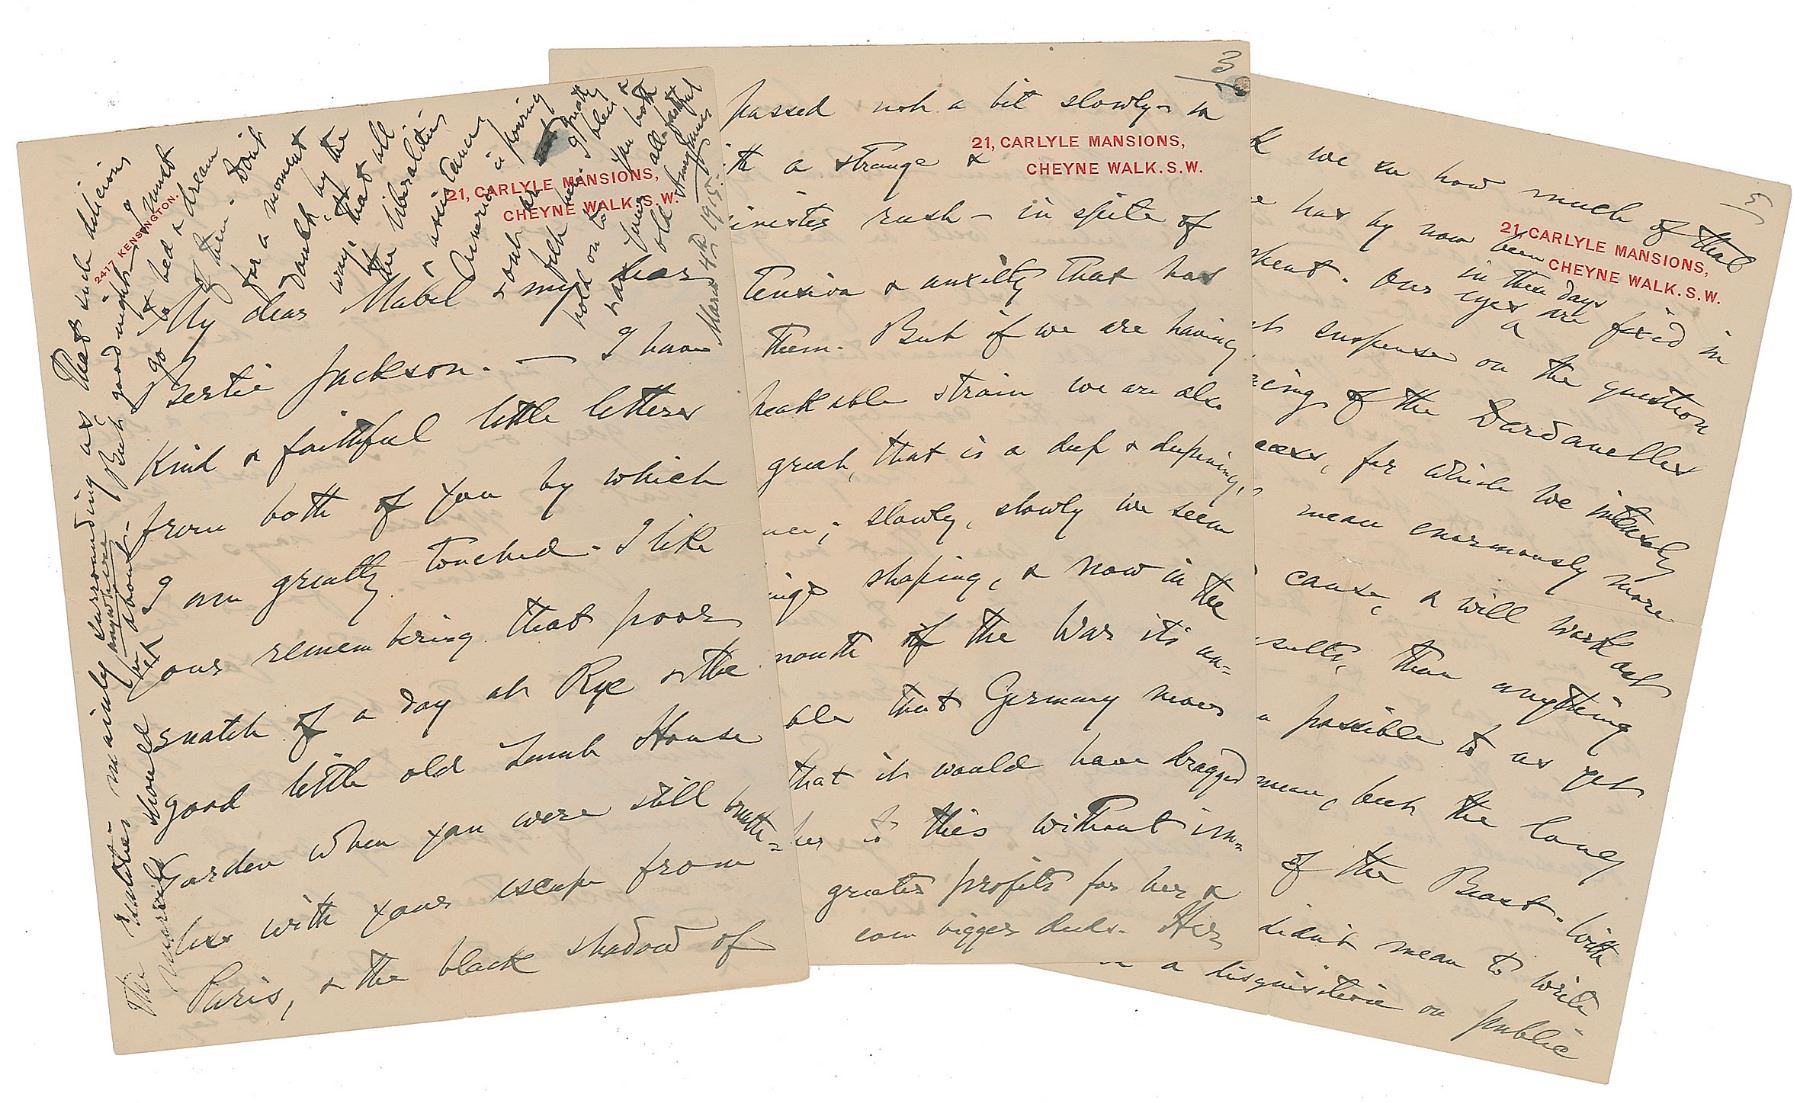 2417 KENSINGTON.
21, CARLYLE MANSIONS,
CHEYNE WALK. S.W.
My dear Mabel & my dear
Bertie Jackson. — I have
kind & faithful little letters
from both of you by which
I am greatly touched. I like
your remembering that poor
snatch of a day at Rye & the
good little old Lamb House
Garden when you were still breath-
less with your escape from
Paris, & the black shadow of
The Eualities mainly surrounding us,
anywhere
That such delicious
But good-night—I must
go to bed & dream
of them. Don't
for a moment
doubt by the
way that all
the liberalities
& assistances
America is pouring
hold on to you both
& am your all-faithful
old Henry James
March 4th 1915.
3
21, CARLYLE MANSIONS,
CHEYNE WALK. S.W.
passed not a bit slowly—in
th a strange &
inister rush — in spite of
tension & anxiety that has
them. But if we are having
eakable strain we are also
great, that is a deep & deepening,
nce; slowly, slowly we seem
ings shaping, & now in the
month of the War it's un-
ble that Germany
that it would have dragged
her to this without im-
greater profits for her, &
bigger deeds. Her
5
21, CARLYLE MANSIONS,
CHEYNE WALK. S.W.
k we in how much of that
e has by now been
in these days
spent. Our eyes are fixed in
suspense on the question
cing of the Dardanelles
cess, for which we intensely
mean enormously more
cause, & will work out
sults, than anything
possible to as yet
mean, but the long
of the Beast. With
didn't mean to write
a disquisition on public